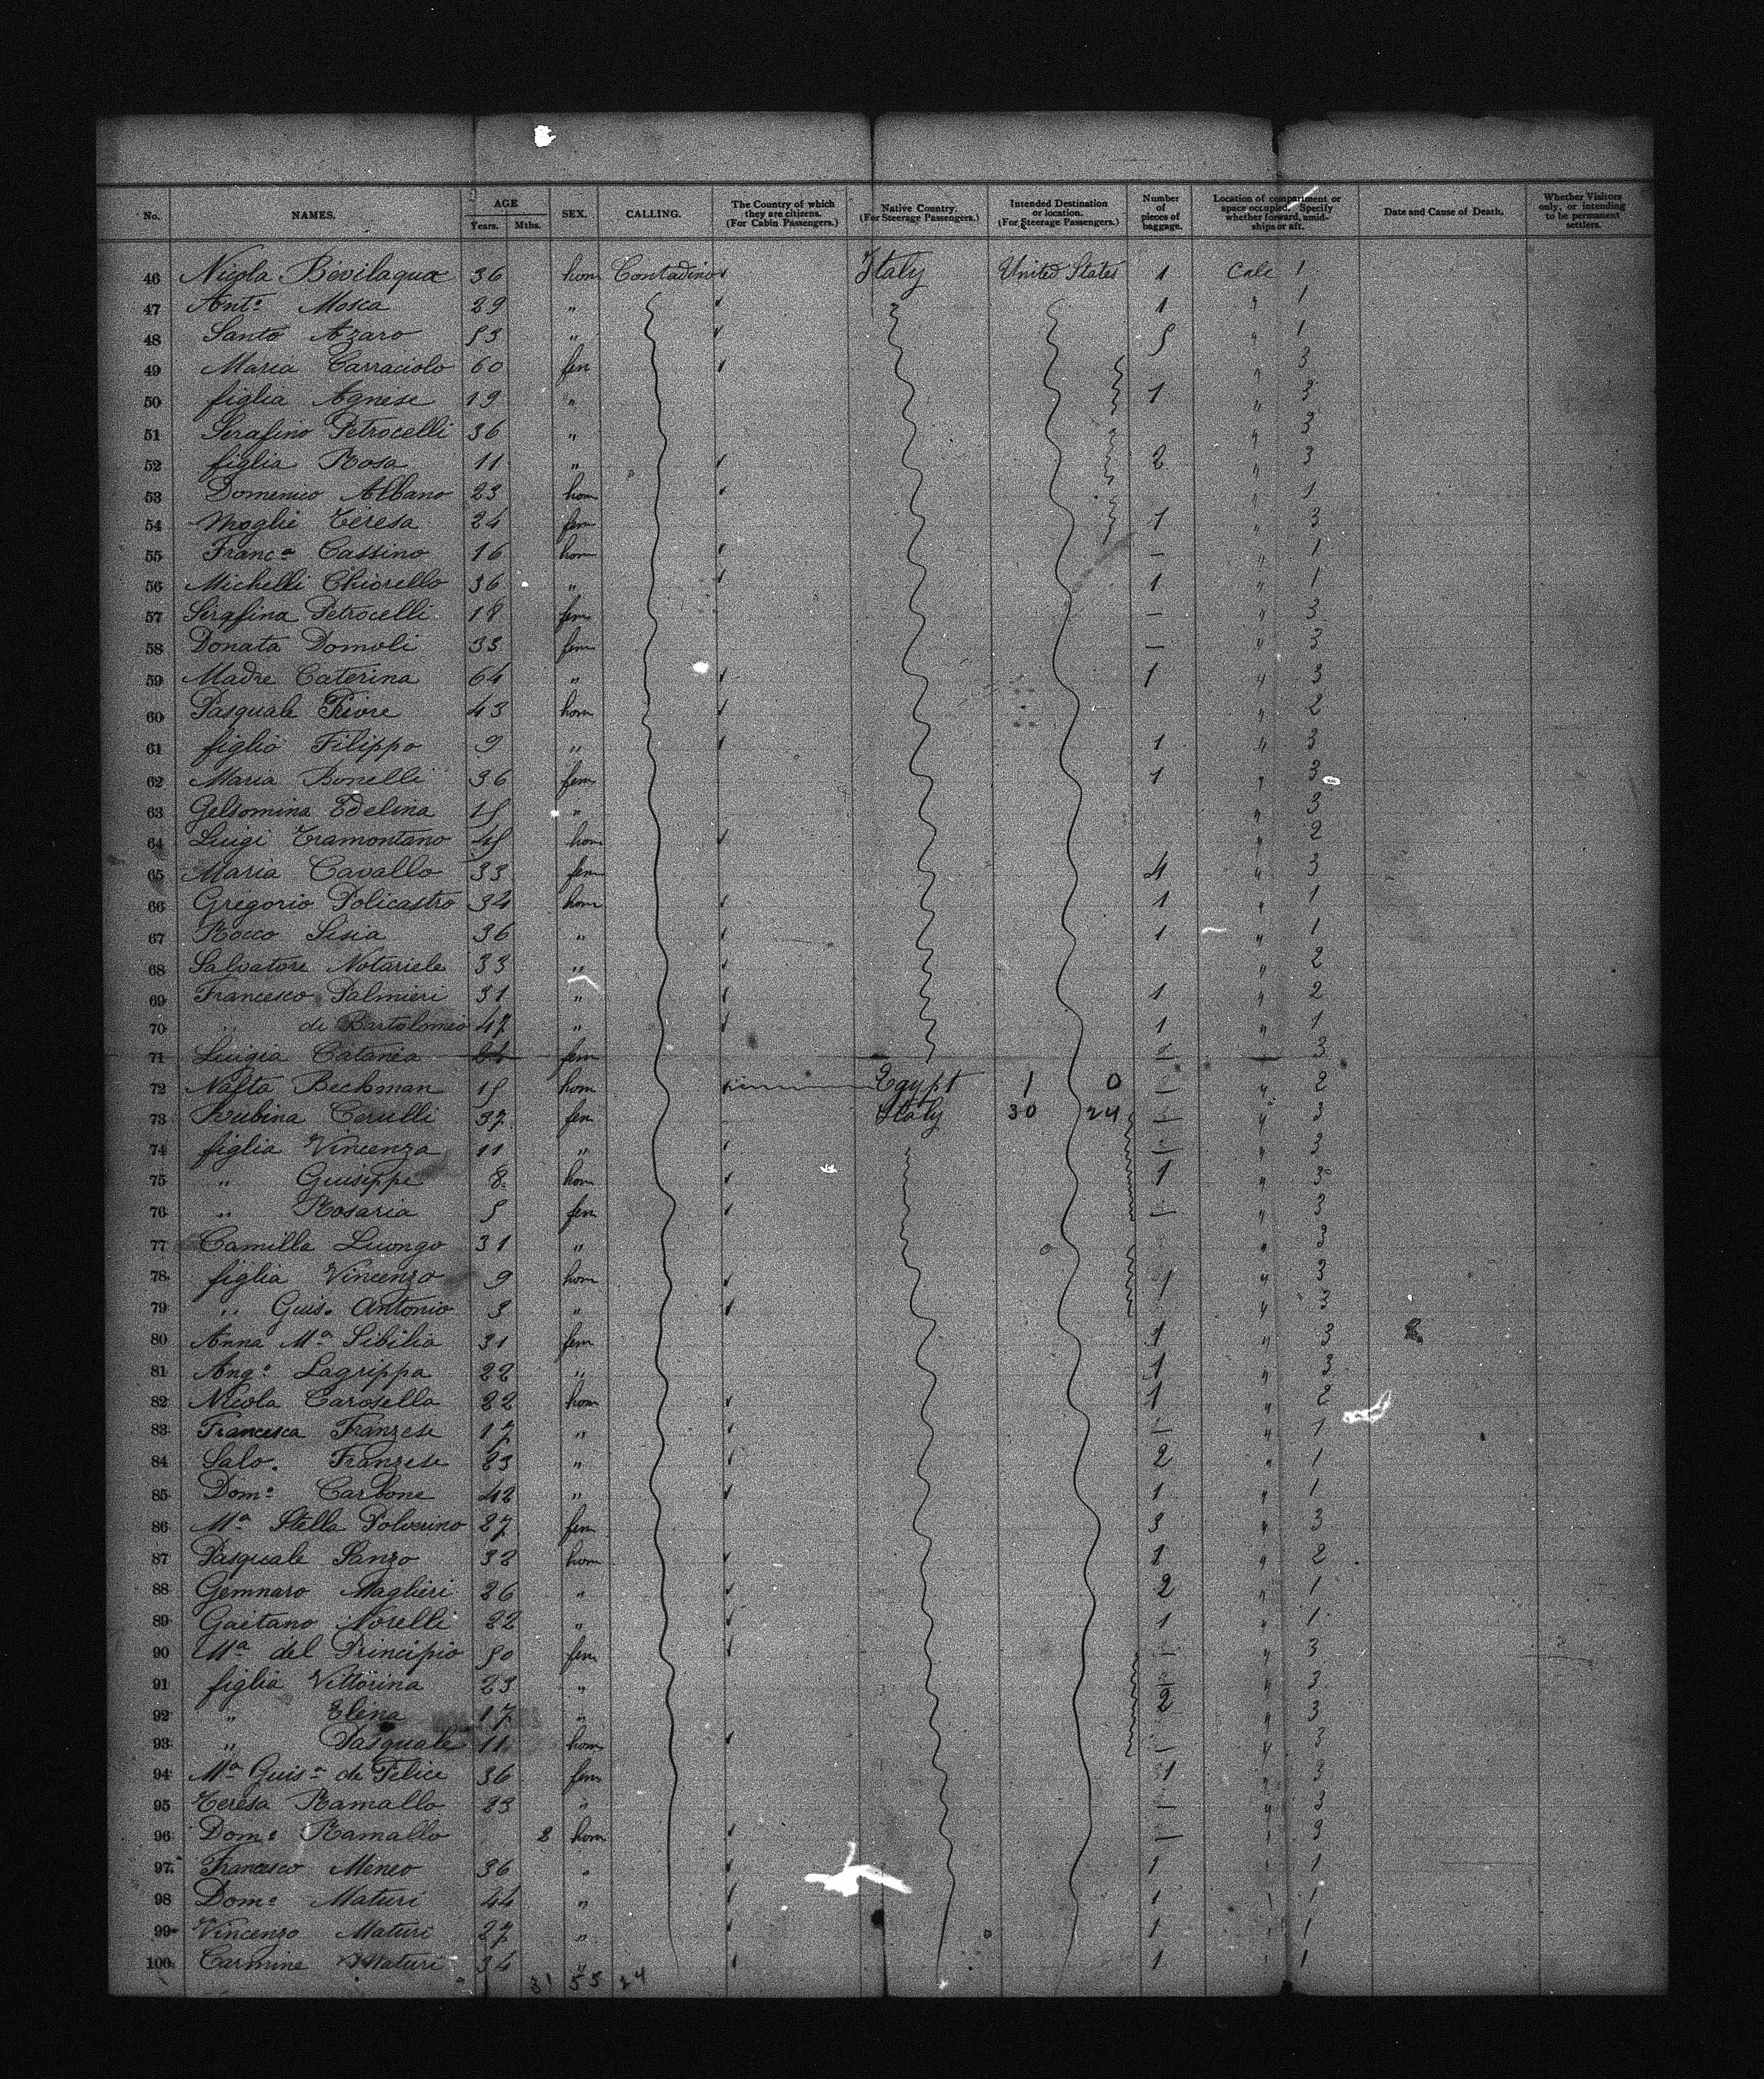 No. NAMES. AGE Years. Mths. SEX. CALLING. The Country of which they are citizens. (For Cabin Passengers.) Native Country. (For Steerage Passengers.) Intended Destination or location. (For Steerage Passengers.) Number of pieces of baggage. Location of compartment or space occupied. Specify whether forward, amidships or aft. Date and Cause of Death. Whether Visitors only, or intending to be permanent settlers.
46 Nicola Bevilaqua 36 hom Contadino Italy United States 1 Cale 1
47 Ant.º Mosca 29 " 1 " 1
48 Santo Azaro 53 " 5 " 1
49 Maria Carraciolo 60 fem " 3
50 figlia Agnese 19 " 1 " 3
51 Serafino Petrocelli 36 " " 3
52 figlia Rosa 11 " 2 " 3
53 Domenico Albano 23 hom " 1
54 Moglie Teresa 24 fem 1 " 3
55 Franc.º Cassino 16 hom — " 1
56 Michelli Chiorello 36 " 1 " 1
57 Serafina Petrocelli 18 fem — " 3
58 Donata Domoli 33 fem — " 3
59 Madre Caterina 64 " 1 " 3
60 Pasquale Fiore 43 hom " 2
61 figlio Filippo 9 " 1 " 3
62 Maria Bonelli 36 fem 1 " 3
63 Gelsomina Edelina 15 " " 3
64 Luigi Tramontano 45 hom " 2
65 Maria Cavallo 33 fem 4 " 3
66 Gregorio Policastro 34 hom 1 " 1
67 Rocco Sisia 36 " 1 " 1
68 Salvatore Notariele 33 " " 2
69 Francesco Palmieri 31 " 1 " 2
70 " de Bartolomeo 47 " 1 " 1
71 Luigia Catanea fem — 3
72 Nafta Beckman 15 hom Egypt 1 0 — " 2
73 Rubina Cerulli 37 fem Italy 30 24 — " 3
74 figlia Vincenza 11 " — " 3
75 " Guiseppe 8 hom 1 " 3
76 " Rosaria 5 fem — " 3
77 Camilla Luongo 31 " " 3
78 figlia Vincenzo 9 hom 1 " 3
79 " Guis. Antonio 3 " " 3
80 Anna Mª Sibilia 31 fem 1 " 3
81 Ang.ª Lagrippa 22 " 1 " 3
82 Nicola Carosella 22 hom 1 " 2
83 Francesca Franzese 17 " — " 1
84 Salv. Franzese 23 " 2 " 1
85 Dom.º Carbone 42 " 1 " 1
86 Mª Stella Polverino 27 fem 3 " 3
87 Pasquale Sanzo 32 hom 1 " 2
88 Gennaro Maglieri 26 " 2 " 1
89 Gaetano Norelli 22 " 1 " 1
90 Mª del Principio 50 fem — " 3
91 figlia Vittorina 23 " " 3
92 " Elena 17 " 2 " 3
93 " Pasquale 11 hom — " 3
94 Mª Guis.ª de Felice 36 fem 1 " 3
95 Teresa Ramallo 23 " — " 3
96 Dom.º Ramallo 2 hom — " 3
97 Francesco Meneo 36 " 1 " 1
98 Dom.º Maturi 44 " 1 " 1
99 Vincenzo Maturi 27 " 1 " 1
100 Carmine Maturi 34 " 1 " 1
31 55 24